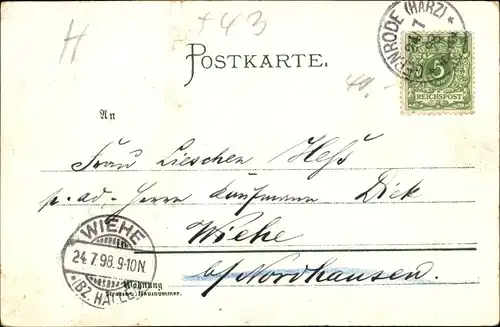 H
+43
POSTKARTE.
40.-
GERNRODE (HARZ) *
24 7
5
REICHSPOST
An
Frau Lieschen Heß
p. ad. Herrn Kaufmann Dick
Wiehe
b/ Nordhausen.
WIEHE
24.7.98.9-10N.
*(BZ. HALLE)
Wohnung